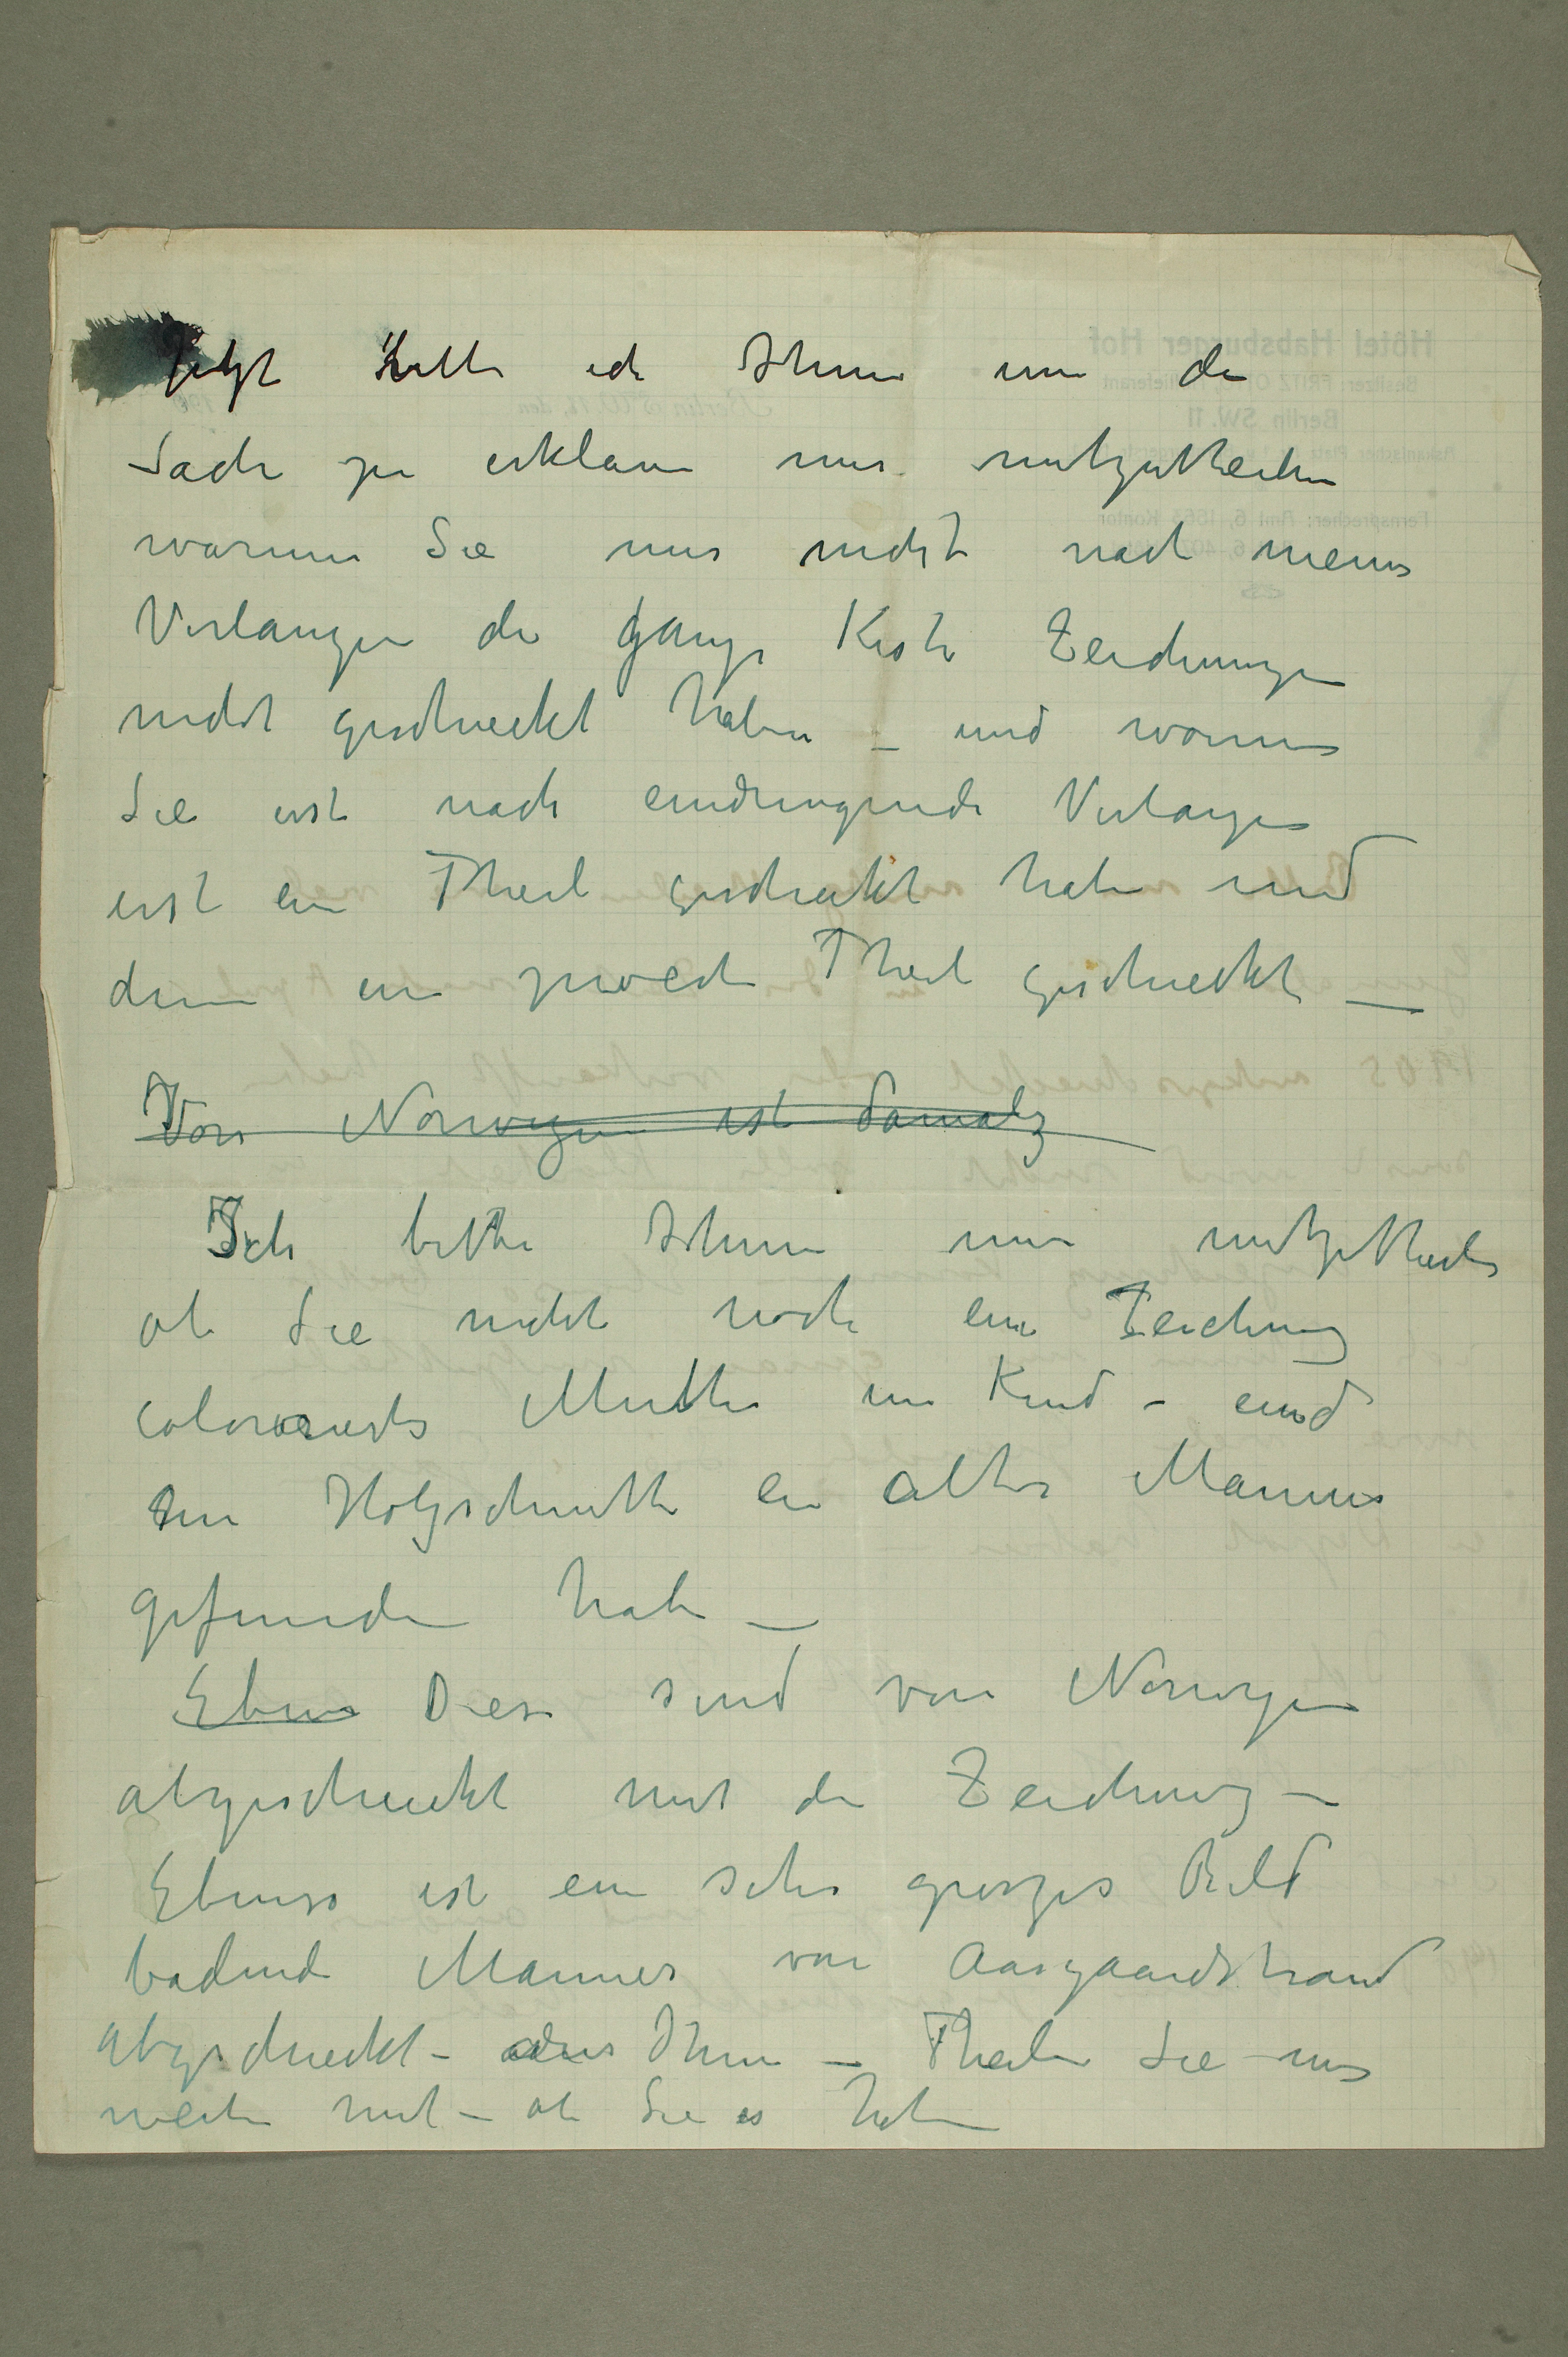 Jetzt bitte ich Ihnen um die
Sache zu erklären mir mitzutheilen
warum Sie mir nicht nach meines
Verlangen die ganze Kiste Zeichnungen
nicht geschieckt haben – und warum
Sie erst nach eindringende Verlangen
erst ein Theil geschiekt haben und
dann ein zweite Theil geschieckt –
Von Norwegen ist damalz
Ich bitte Ihnen mir mitzutheilen
ob Sie nicht noch eine Zeichnung
Mutter um Kind – und
ein Holzschnitte ein alter Mannes
gefunden haben –
Ebens Diese sind von Norwegen
abgeschieckt mit die Zeichnung –
Ebenso ist ein sehr groszes Bild
badende Männer von Aasgaardstrand
abgeschieckt – Ihnen – Theilen Sie mir
weiter mit – ob Sie es haben
Hôtel Habsburger Hof
Berlin SW. 11
Fernsprecher: Amt 6, Kontor